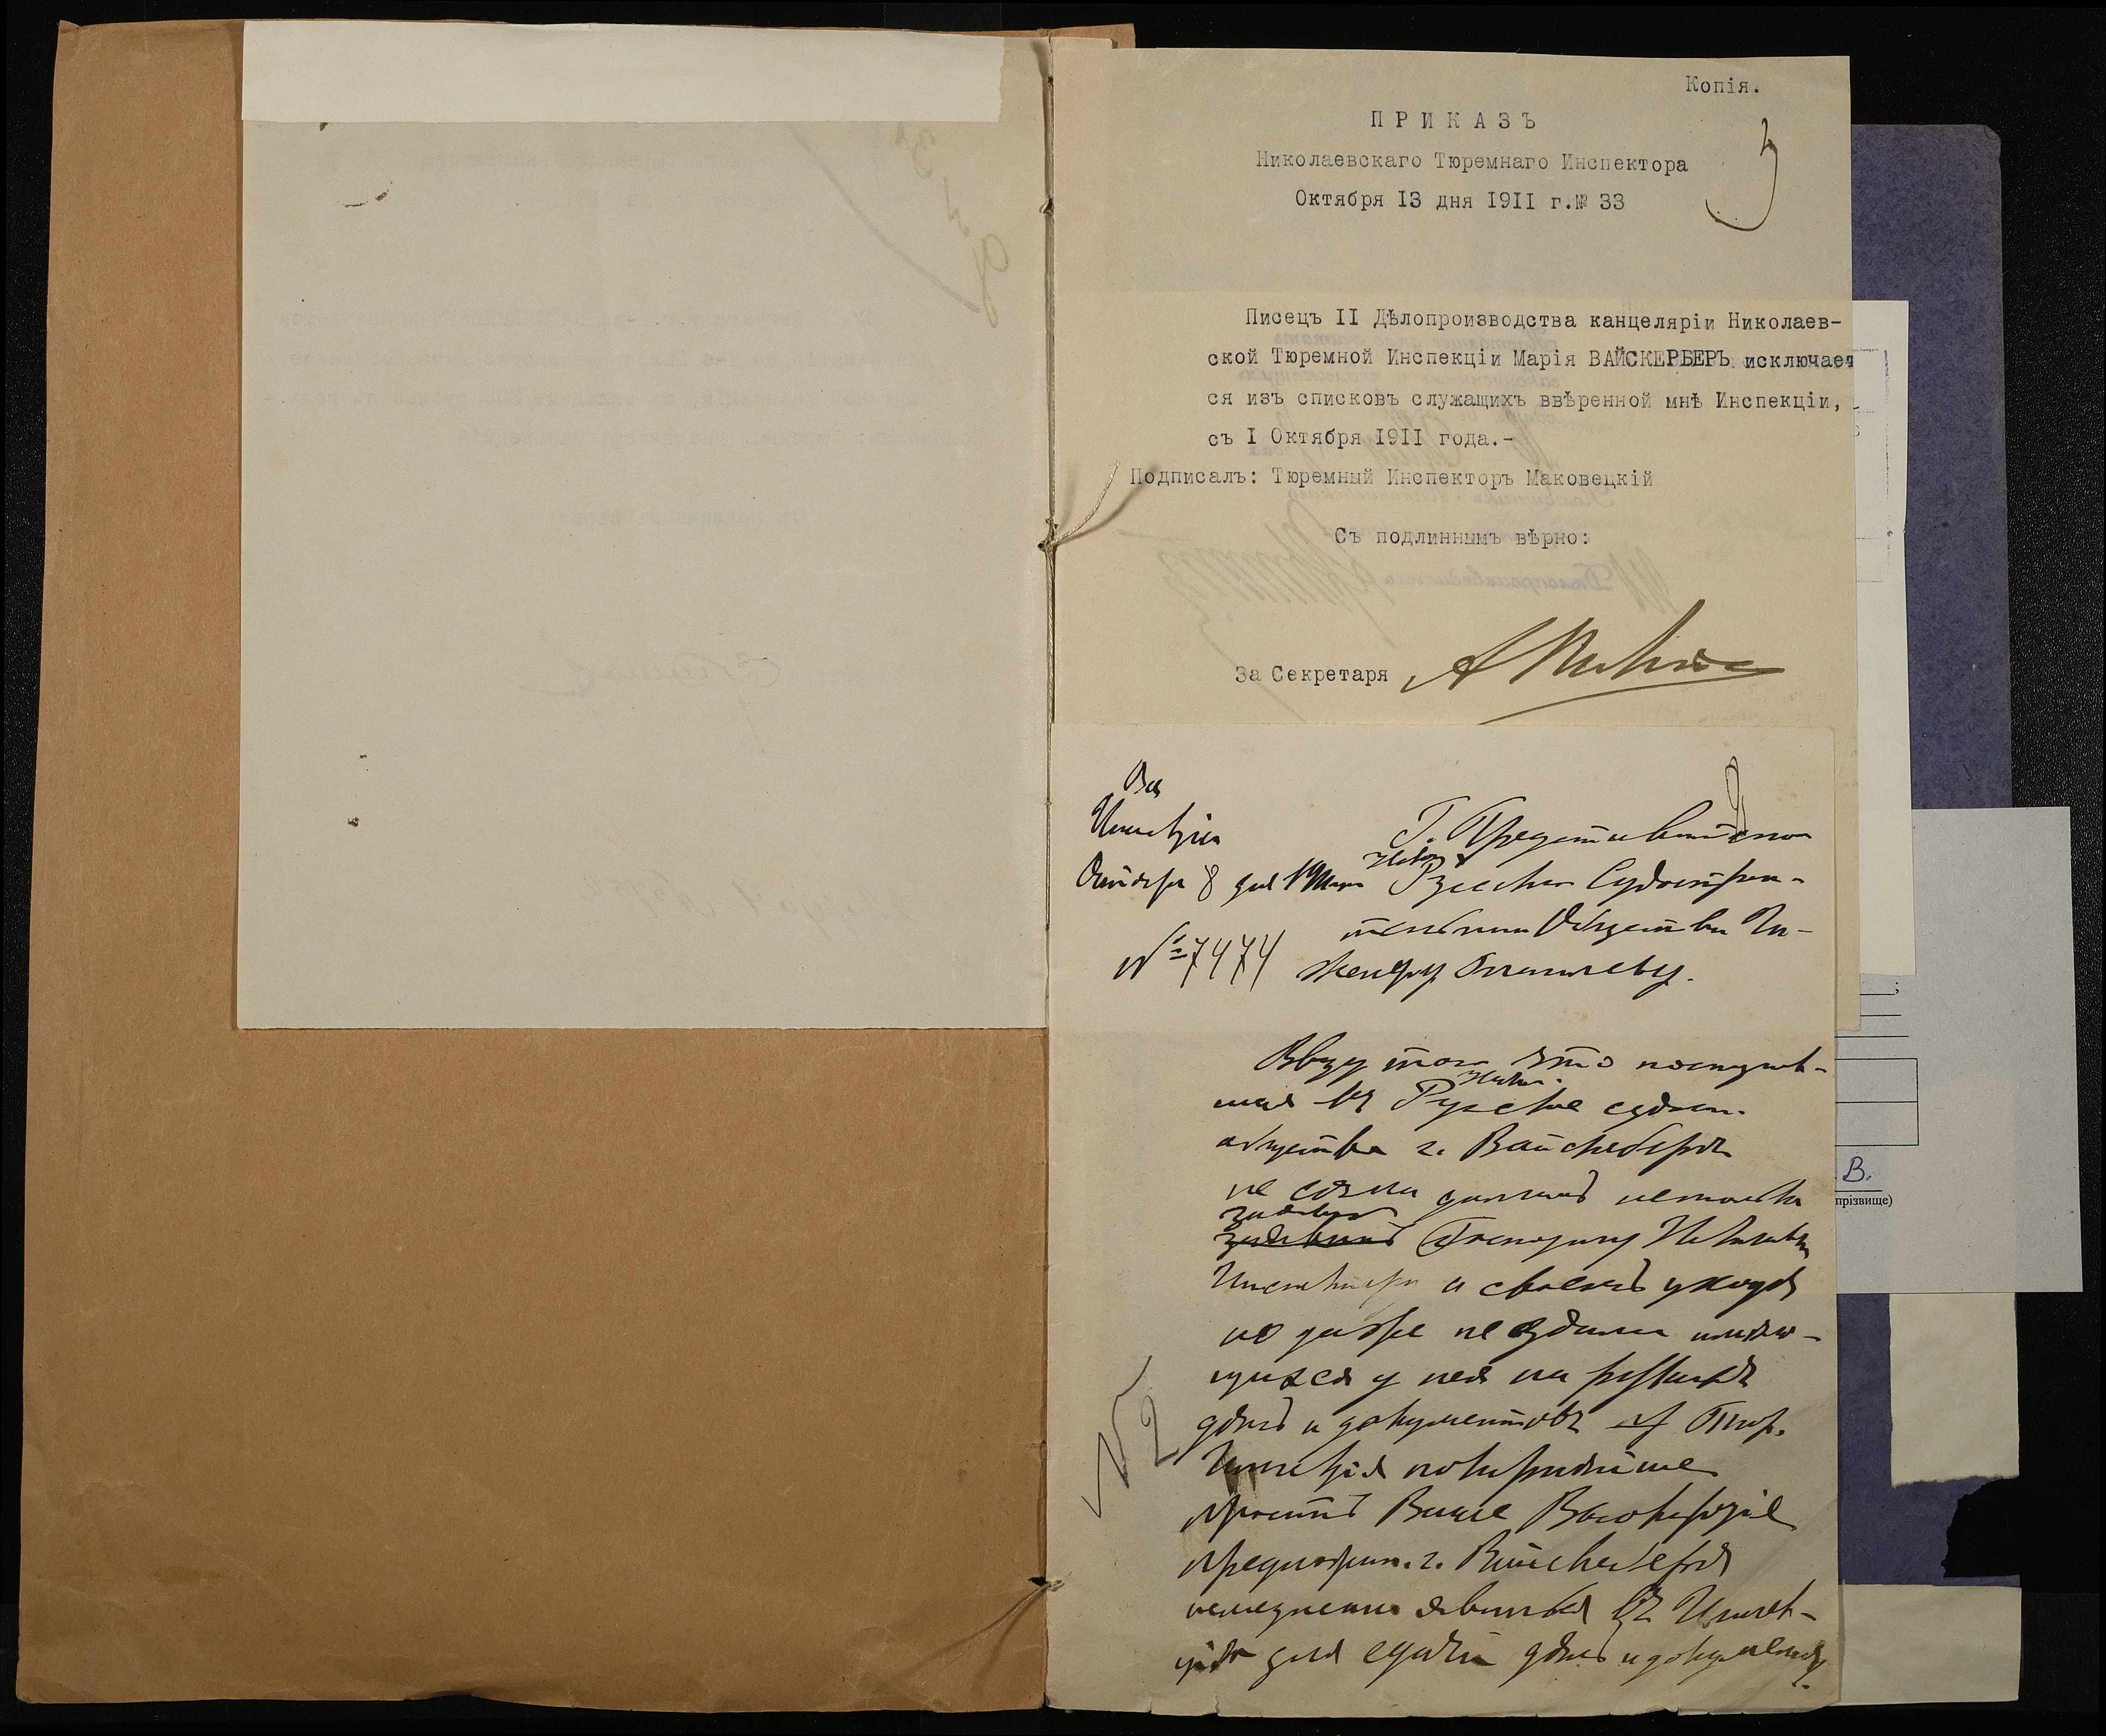 Копія.
ПРИКАЗЪ
Николаевскаго Тюремнаго Инспектора
Октября 13 дня 1911 г.№ 33
3
Писецъ II Дѣлопроизводства канцеляріи Николаев-
ской Тюремной Инспекціи Марія ВАЙСКЕРБЕРЪ исключает
ся изъ списковъ служащихъ ввѣренной мнѣ Инспекціи,
съ I Октября 1911 года.-
Подписалъ: Тюремный Инспекторъ Маковецкій
Съ подлиннымъ вѣрно:
За Секретаря
2
Инспекція
Октября 8 дня 1911
№ 7474
Г. Представителю
Русскаго Судострои-
тельнаго Общества Ин-
женеру
Ввиду того что поступив-
шая въ Русское судостр.
общество г.
не сочла долгомъ не только
Господину
Инспектору о своемъ уходѣ
но даже не сдала имѣю-
щихся у нея на рукахъ
дѣлъ и документовъ Тюр.
Инспекція покорнѣйше
проситъ Ваше Высокородіе
предложить г.
немедленно явиться въ Инспек-
цію для сдачи дѣлъ и документ.
В.
прізвище)